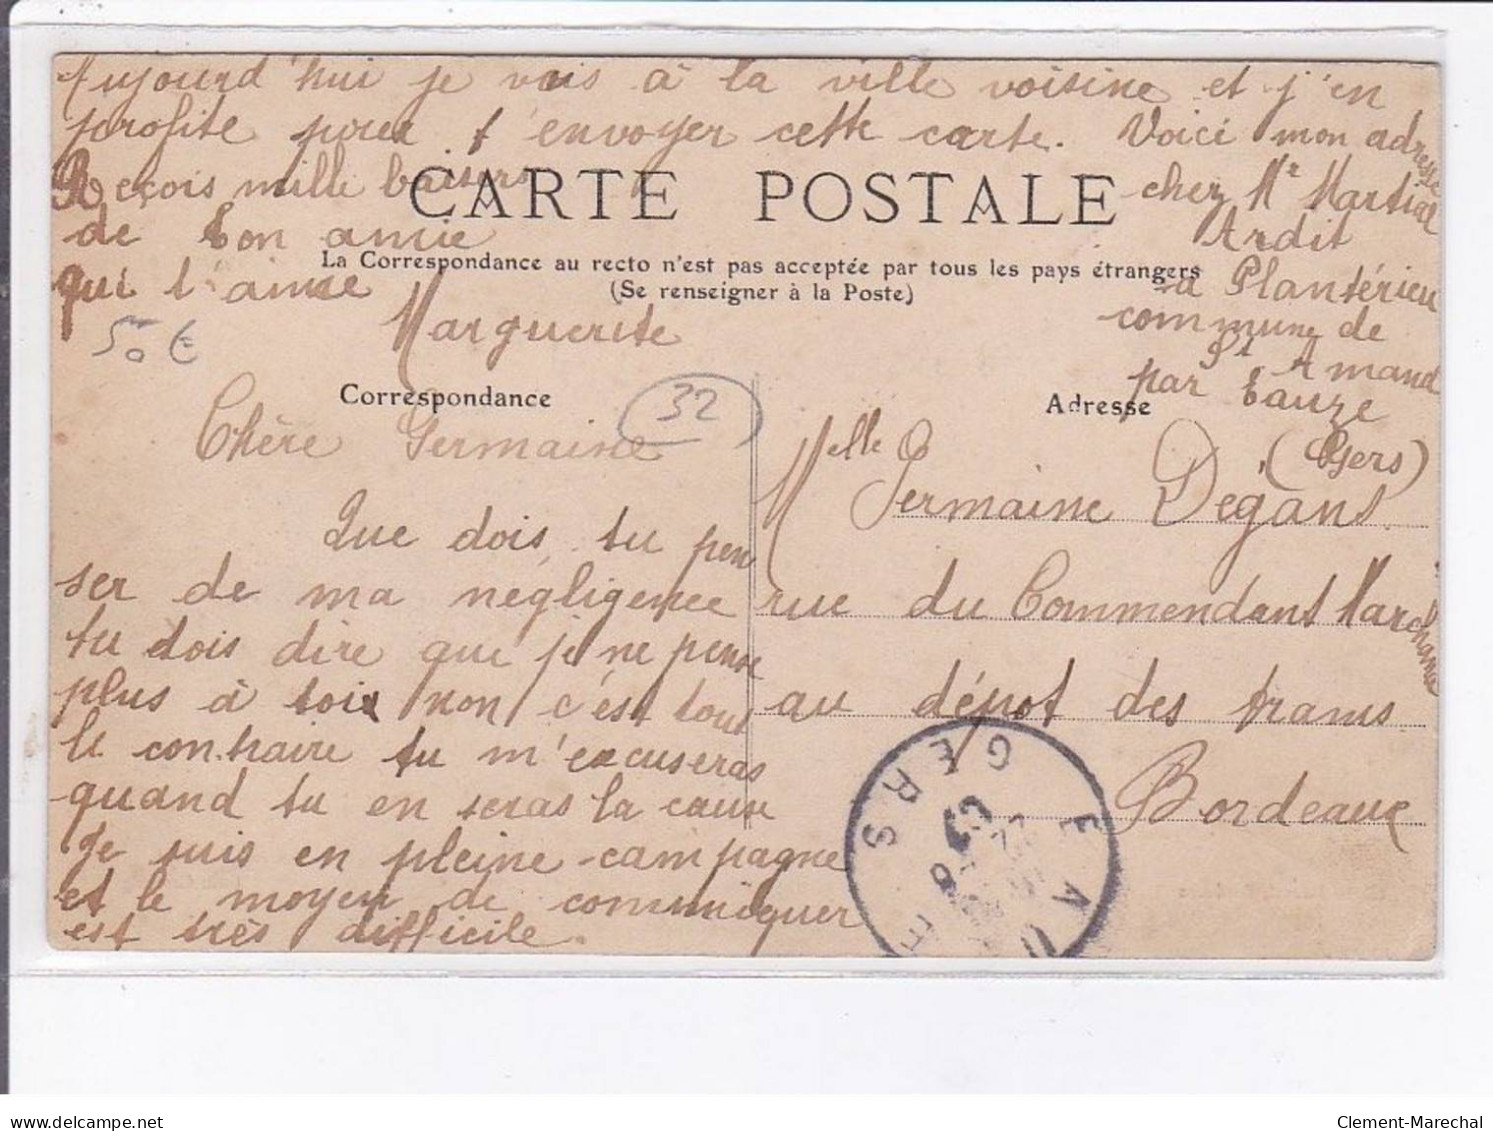 Aujourd'hui je vais à la ville voisine et j'en
profite pour t'envoyer cette carte. Voici mon adresse
Reçois mille baisers
de ton amie
qui t'aime
Marguerite
chez Mr Martial
Ardit
à Plantérieu
commune de
St Amand
par Eauze
(Gers)
CARTE POSTALE
La Correspondance au recto n'est pas acceptée par tous les pays étrangers
(Se renseigner à la Poste)
50 €
32
Correspondance
Adresse
Chère Germaine
Que dois tu pen
ser de ma négligence
tu dois dire que je ne pense
plus à toi non c'est tout
le contraire tu m'excuseras
quand tu en seras la cause
Je suis en pleine campagne
et le moyen de communiquer
est très difficile.
Melle Germaine Degans
rue du Commendant Marchand
au dépôt des trams
Bordeaux
EAUZE
GERS
www.delcampe.net
Clement-Marechal